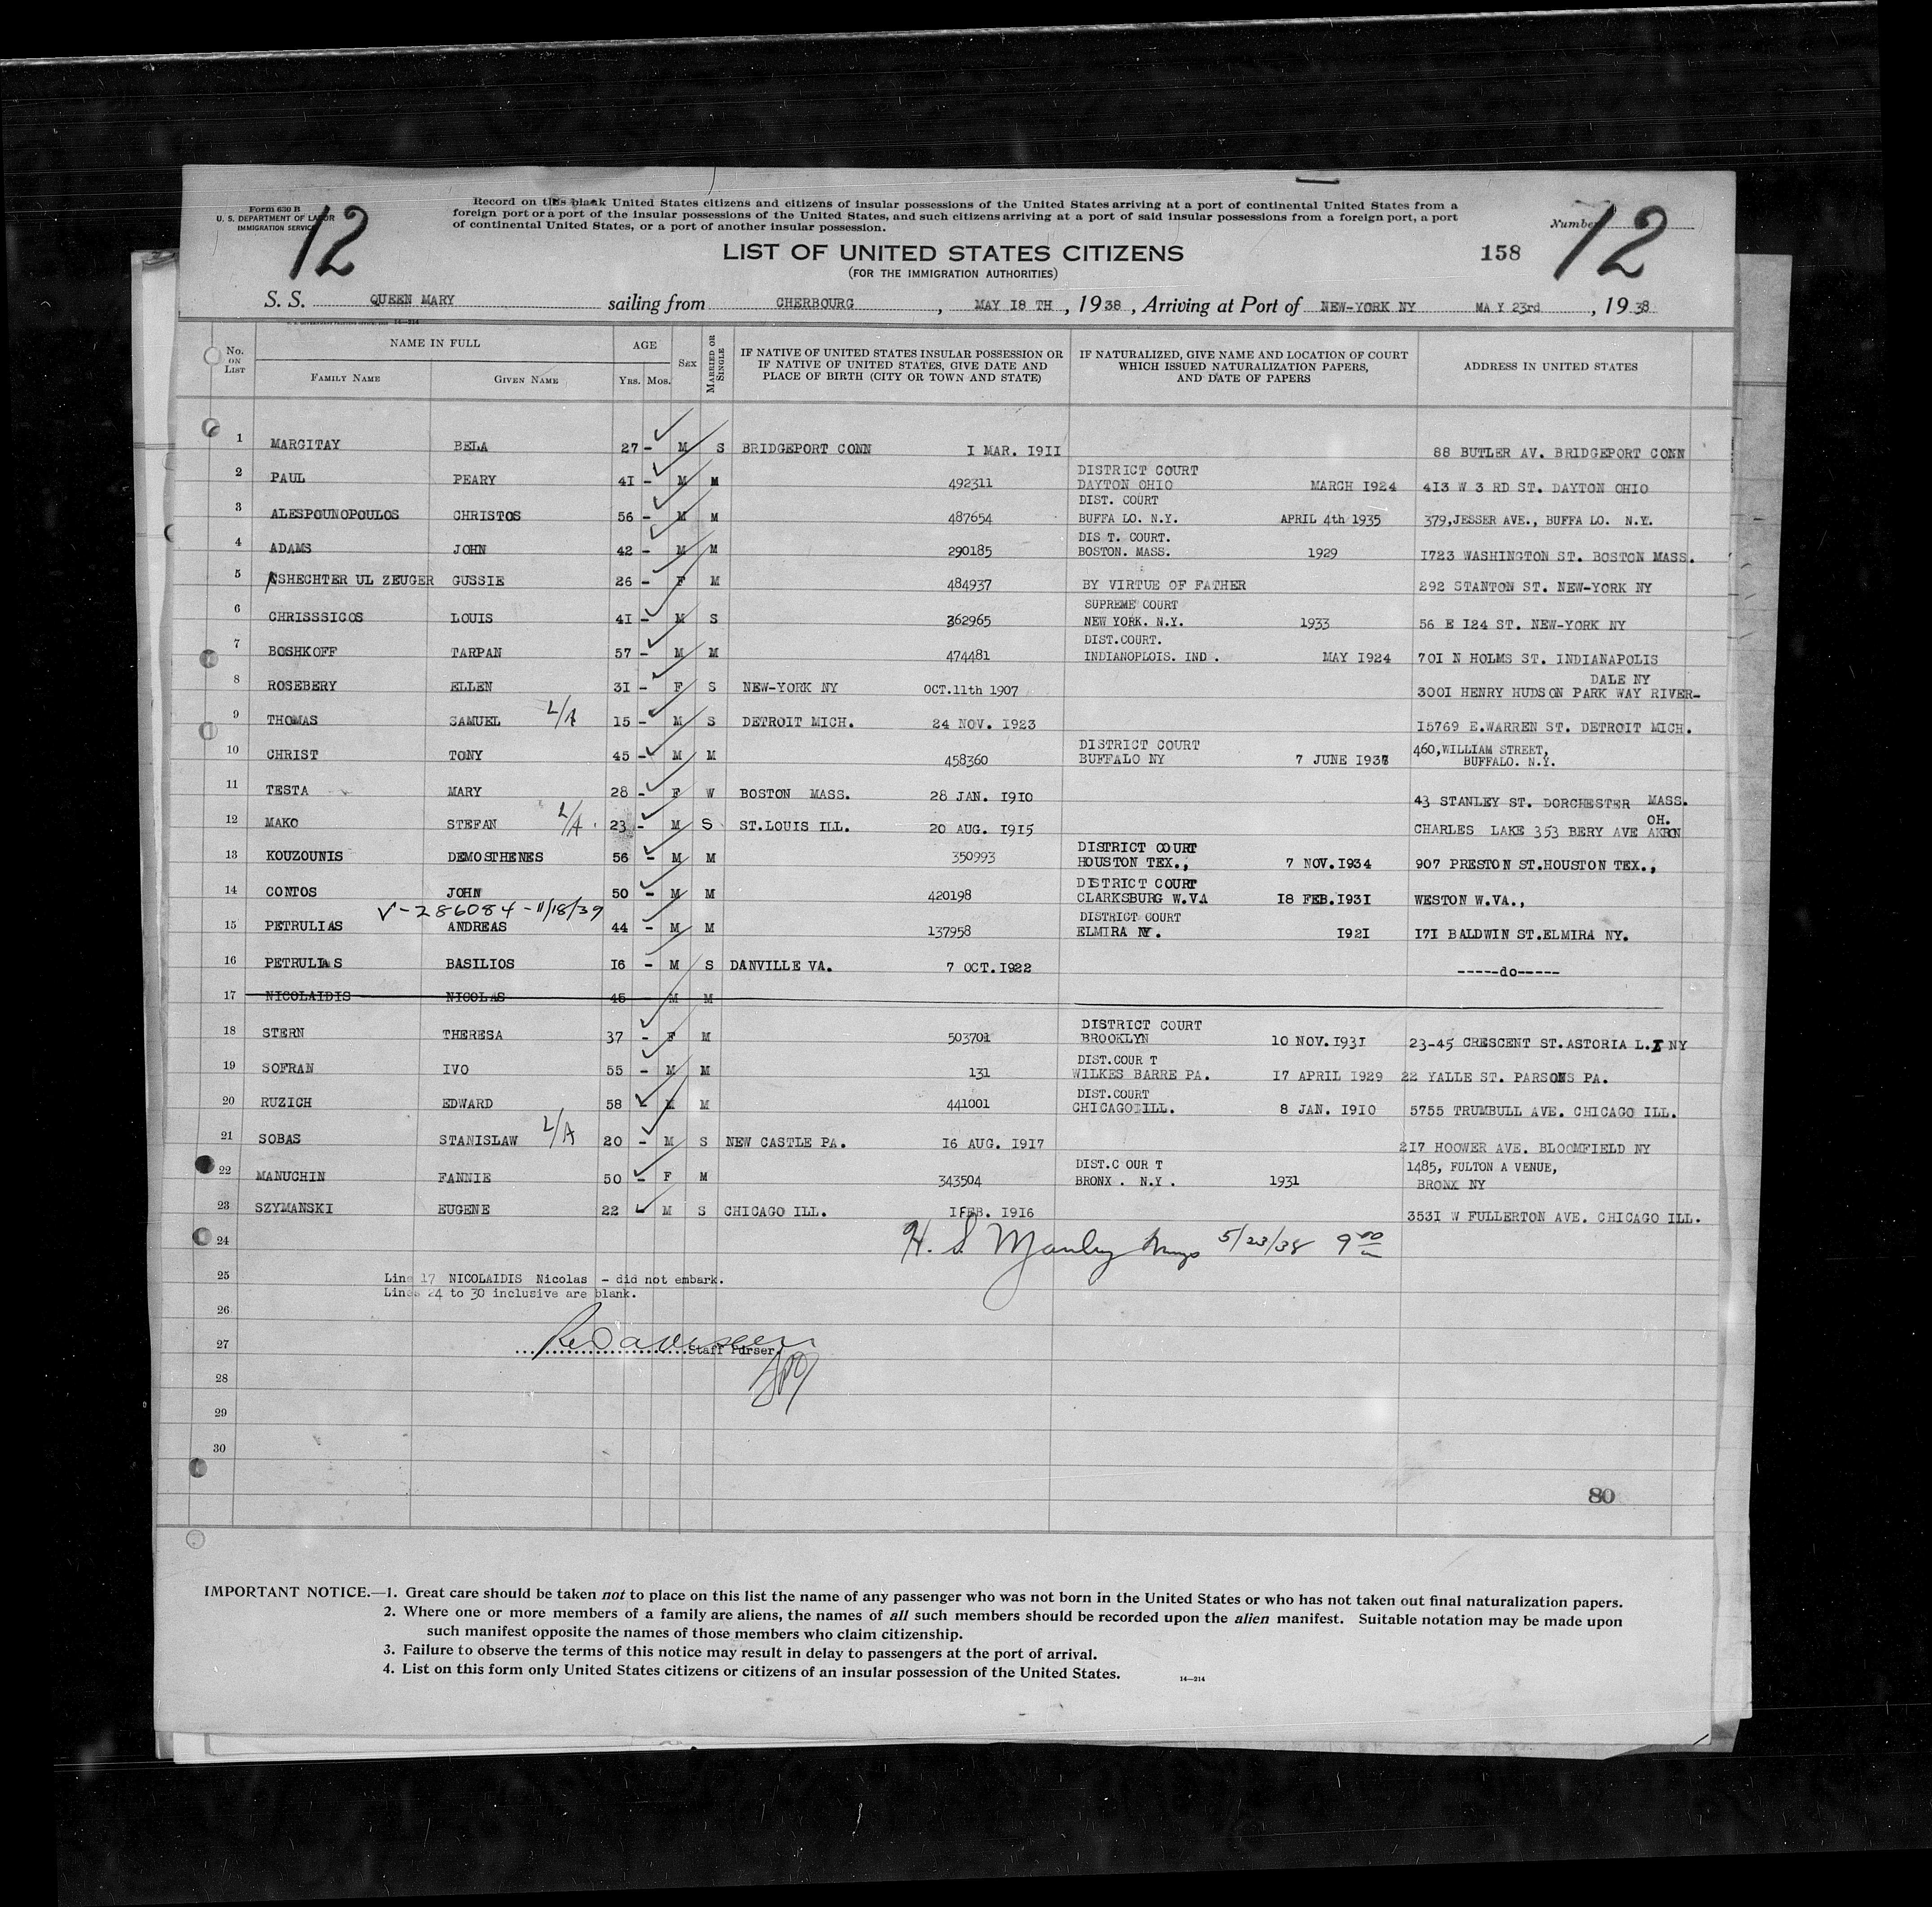 Form 630 B
U. S. DEPARTMENT OF LABOR
IMMIGRATION SERVICE
12
Record on this blank United States citizens and citizens of insular possessions of the United States arriving at a port of continental United States from a
foreign port or a port of the insular possessions of the United States, and such citizens arriving at a port of said insular possessions from a foreign port, a port
of continental United States, or a port of another insular possession.
Number
12
LIST OF UNITED STATES CITIZENS
158
(FOR THE IMMIGRATION AUTHORITIES)
S. S. QUEEN MARY sailing from CHERBOURG, MAY I8 TH, 1938, Arriving at Port of NEW-YORK NY MA Y 23rd, 1938
No. ON LIST
NAME IN FULL
FAMILY NAME GIVEN NAME
AGE
YRS. MOS.
SEX
MARRIED OR SINGLE
IF NATIVE OF UNITED STATES INSULAR POSSESSION OR
IF NATIVE OF UNITED STATES, GIVE DATE AND
PLACE OF BIRTH (CITY OR TOWN AND STATE)
IF NATURALIZED, GIVE NAME AND LOCATION OF COURT
WHICH ISSUED NATURALIZATION PAPERS,
AND DATE OF PAPERS
ADDRESS IN UNITED STATES
1 MARGITAY BELA 27 - M S BRIDGEPORT CONN I MAR. I9II 88 BUTLER AV. BRIDGEPORT CONN
DISTRICT COURT
2 PAUL PEARY 4I - M M 492311 DAYTON OHIO MARCH I924 4I3 W 3 RD ST. DAYTON OHIO
DIST. COURT
3 ALESPOUNOPOULOS CHRISTOS 56 - M M 487654 BUFFA LO. N.Y. APRIL 4th 1935 379,JESSER AVE., BUFFA LO. N.Y.
DIS T. COURT.
4 ADAMS JOHN 42 - M M 290185 BOSTON. MASS. 1929 I723 WASHINGTON ST. BOSTON MASS.
5 SHECHTER UL ZEUGER GUSSIE 26 - F M 484937 BY VIRTUE OF FATHER 292 STANTON ST. NEW-YORK NY
SUPREME COURT
6 CHRISSSICOS LOUIS 4I - M S 362965 NEW YORK. N.Y. 1933 56 E I24 ST. NEW-YORK NY
DIST.COURT.
7 BOSHKOFF TARPAN 57 - M M 474481 INDIANOPLOIS. IND . MAY I924 70I N HOLMS ST. INDIANAPOLIS
DALE NY
8 ROSEBERY ELLEN 3I - F S NEW-YORK NY OCT.11th 1907 300I HENRY HUDSON PARK WAY RIVER-
9 THOMAS SAMUEL L/A I5 - M S DETROIT MICH. 24 NOV. I923 I5769 E.WARREN ST. DETROIT MICH.
DISTRICT COURT 460,WILLIAM STREET,
10 CHRIST TONY 45 - M M 458360 BUFFALO NY 7 JUNE I937 BUFFALO. N.Y.
11 TESTA MARY 28 - F W BOSTON MASS. 28 JAN. I9I0 43 STANLEY ST. DORCHESTER MASS.
OH.
12 MAKO STEFAN L/A 23 - M S ST.LOUIS ILL. 20 AUG. I9I5 CHARLES LAKE 353 BERY AVE AKRON
DISTRICT COURT
13 KOUZOUNIS DEMOSTHENES 56 - M M 350993 HOUSTON TEX., 7 NOV.I934 907 PRESTON ST.HOUSTON TEX.,
DISTRICT COURT
14 CONTOS JOHN 50 - M M 420198 CLARKSBURG W.VA I8 FEB.I93I WESTON W.VA.,
V-286084-11/18/39
DISTRICT COURT
15 PETRULIAS ANDREAS 44 - M M 137958 ELMIRA NY. I92I I7I BALDWIN ST.ELMIRA NY.
16 PETRULIAS BASILIOS I6 - M S DANVILLE VA. 7 OCT.I922 -----do-----
17 NICOLAIDIS NICOLAS 45 - M M
DISTRICT COURT
18 STERN THERESA 37 - F M 503701 BROOKLYN I0 NOV.I93I 23-45 CRESCENT ST.ASTORIA L.I NY
DIST.COUR T
19 SOFRAN IVO 55 - M M 131 WILKES BARRE PA. I7 APRIL I929 22 YALLE ST. PARSONS PA.
DIST.COURT
20 RUZICH EDWARD 58 - M M 441001 CHICAGO ILL. 8 JAN. I9I0 5755 TRUMBULL AVE. CHICAGO ILL.
21 SOBAS STANISLAW L/A 20 - M S NEW CASTLE PA. I6 AUG. I9I7 2I7 HOOWER AVE. BLOOMFIELD NY
DIST.C OUR T 1485, FULTON A VENUE,
22 MANUCHIN FANNIE 50 - F M 343504 BRONX . N.Y . 1931 BRONX NY
23 SZYMANSKI EUGENE 22 - M S CHICAGO ILL. I FEB. I9I6 353I W FULLERTON AVE. CHICAGO ILL.
24
H. S. Manley 5/23/38 9 00
25
Line 17 NICOLAIDIS Nicolas - did not embark.
Lines 24 to 30 inclusive are blank.
26
27
Staff Purser.
28
29
30
80
IMPORTANT NOTICE.—1. Great care should be taken not to place on this list the name of any passenger who was not born in the United States or who has not taken out final naturalization papers.
2. Where one or more members of a family are aliens, the names of all such members should be recorded upon the alien manifest. Suitable notation may be made upon
such manifest opposite the names of those members who claim citizenship.
3. Failure to observe the terms of this notice may result in delay to passengers at the port of arrival.
4. List on this form only United States citizens or citizens of an insular possession of the United States.
14—214